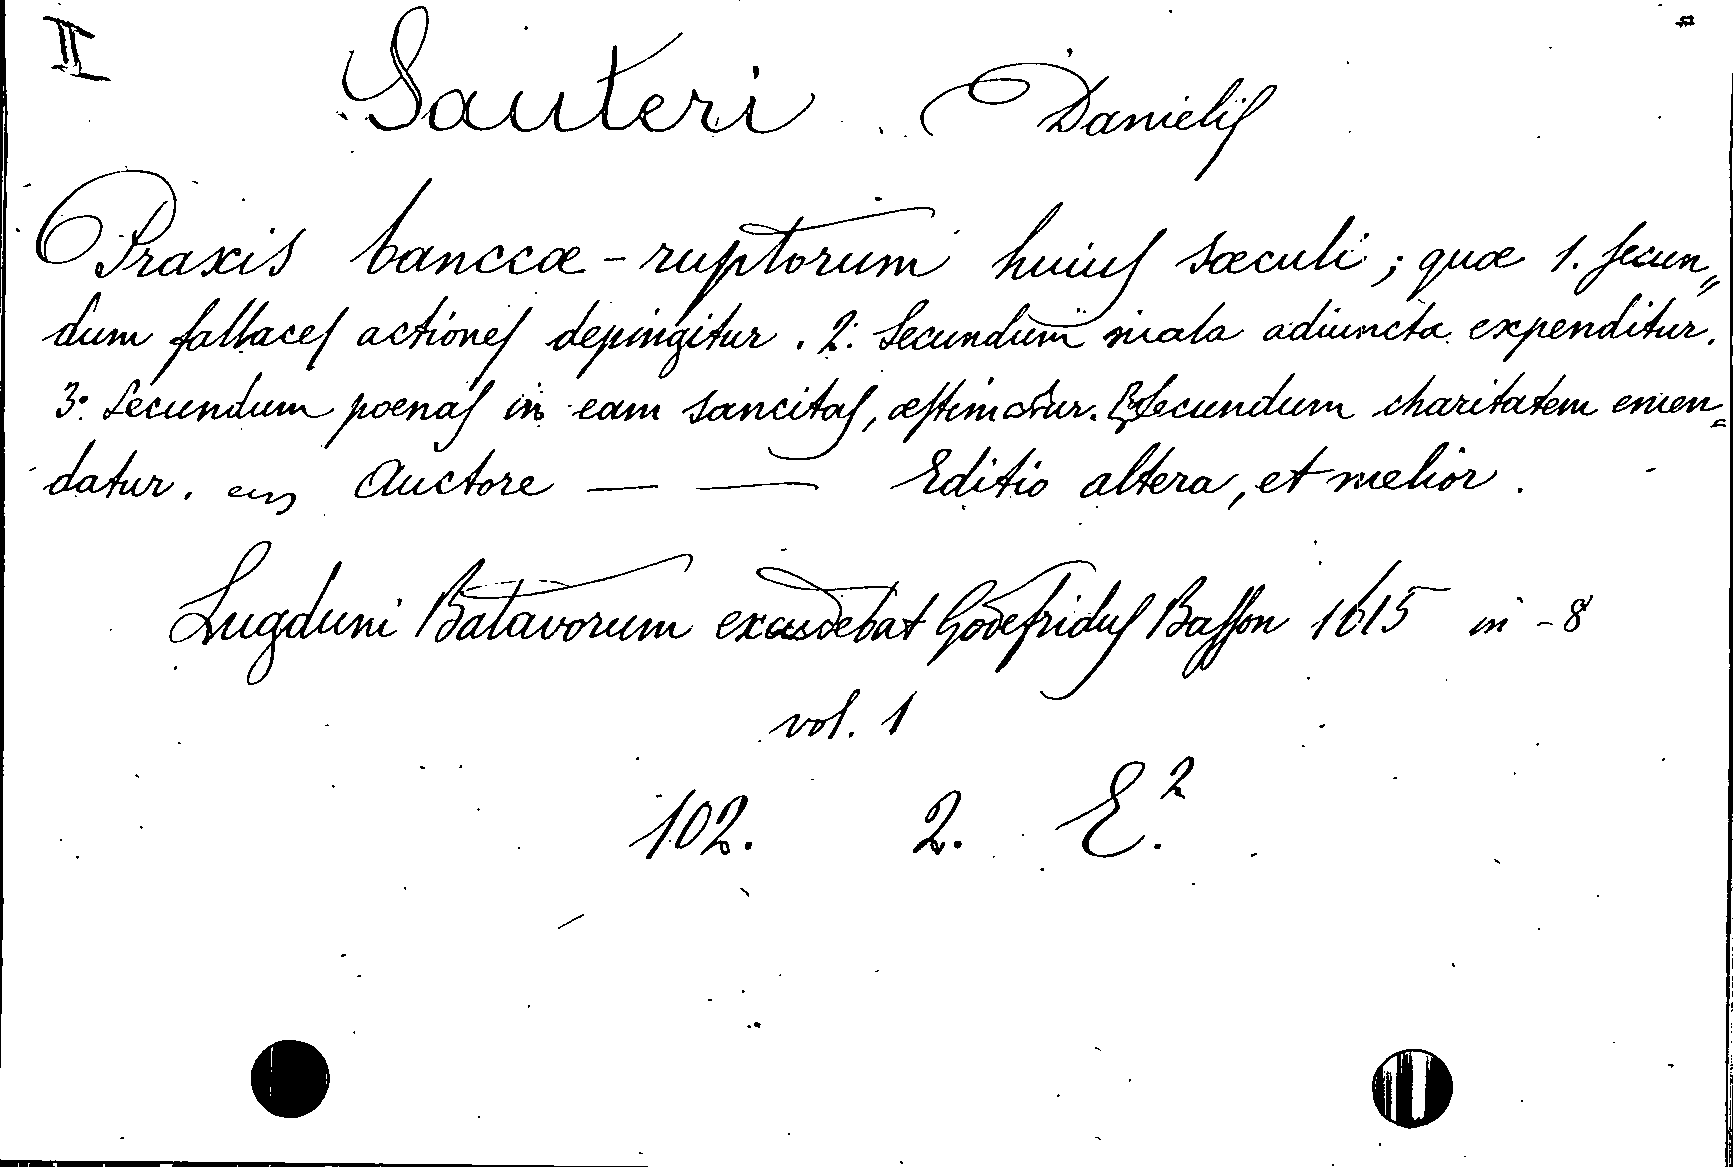 II
Sauteri Danielis
Praxis banccæ-ruptorum huius sæculi; quæ 1. secun„
dum fallaces actiones depingitur. 2: secundum mala adiuncta expenditur.
3: secundum poenas in eam sancitas, æstimatur. secundum charitatem emen„
datur. Auctore — — Editio altera, et melior.
Lugduni Batavorum excudebat Godefridus Basson 1615 in-8
vol. 1
102. 2. E.²